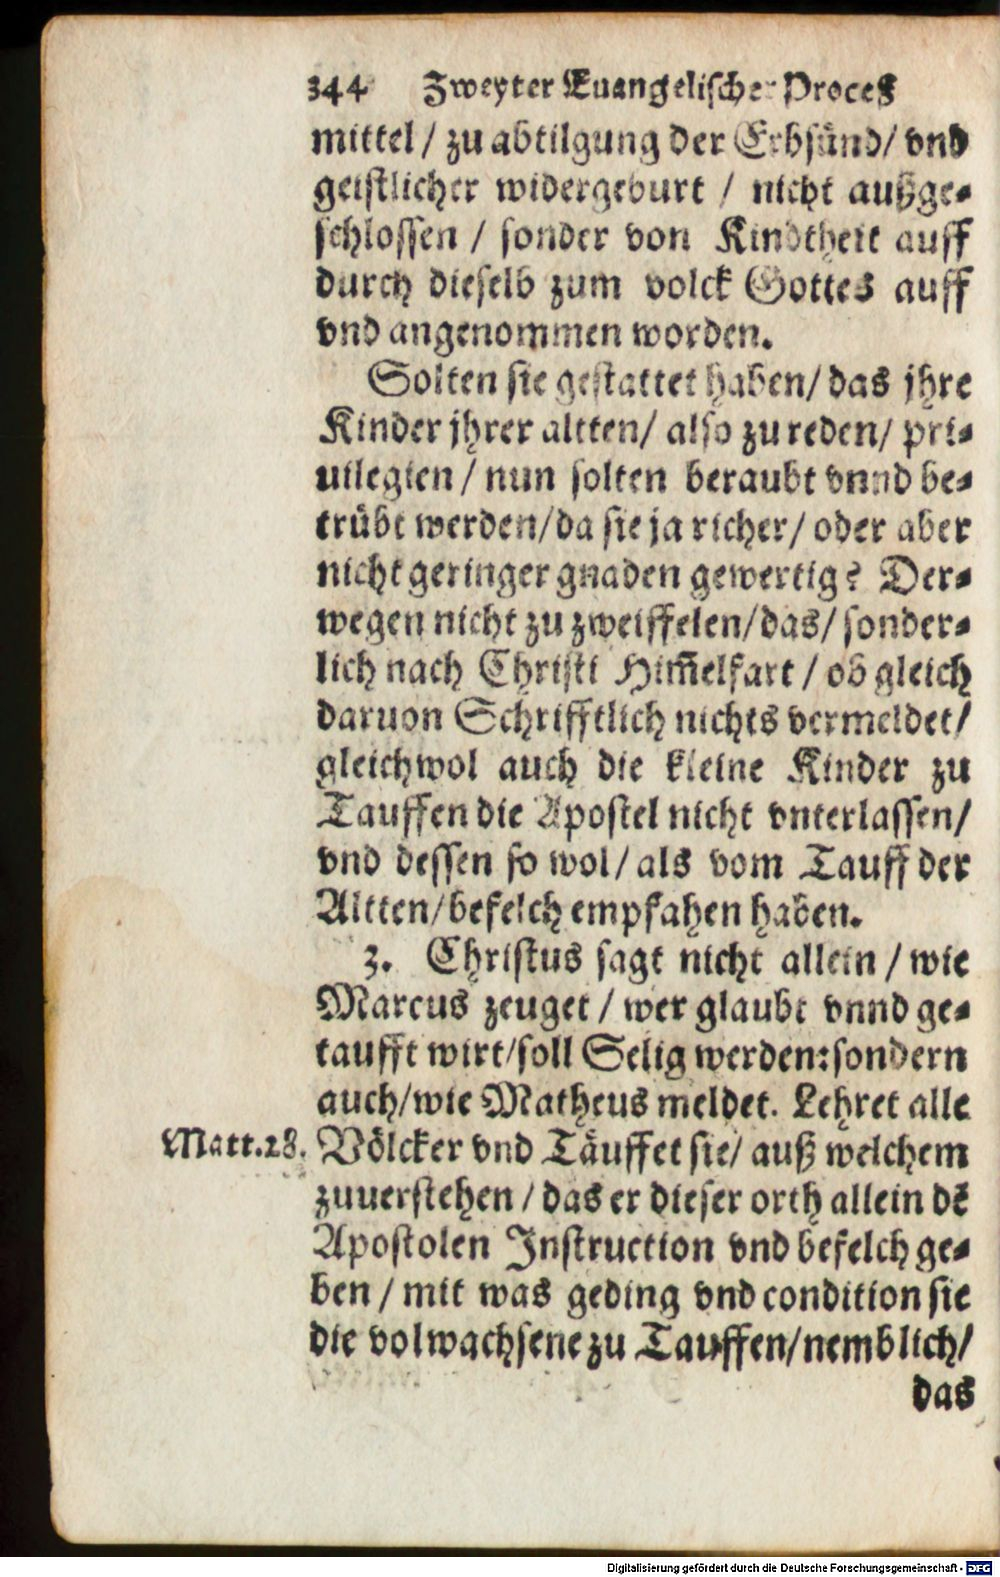 344 Zweyter Euangelischer Proceß
mittel / zu abtilgung der Erbsünd/ vnd
geistlicher widergeburt / nicht außge-
schlossen / sonder von Kindtheit auff
durch dieselb zum volck Gottes auff
vnd angenommen worden.
Solten sie gestattet haben/ das jhre
Kinder jhrer altten/ also zu reden/ pri-
uilegien / nun solten beraubt vnnd be-
trübt werden/da sie ja richer/ oder aber
nicht geringer gnaden gewertig? Der-
wegen nicht zu zweiffelen/das/ sonder-
lich nach Christi Him̃elfart / ob gleich
daruon Schrifftlich nichts vermeldet/
gleichwol auch die kleine Kinder zu
Tauffen die Apostel nicht vnterlassen/
vnd dessen so wol/ als vom Tauff der
Altten/befelch empfahen haben.
3. Christus sagt nicht allein / wie
Marcus zeuget / wer glaubt vnnd ge-
taufft wirt/soll Selig werden:sondern
auch/wie Matheus meldet. Lehret alle
Matt.28. Völcker vnd Täuffet sie/ auß welchem
zuuerstehen / das er dieser orth allein dẽ
Apostolen Instruction vnd befelch ge-
ben / mit was geding vnd condition sie
die volwachsene zu Tauffen/nemblich/
das
Digitalisierung gefördert durch die Deutsche Forschungsgemeinschaft - DFG